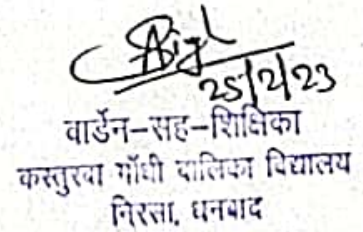 25/2/23
वार्डेन-सह-शिक्षिका
कस्तुरवा गाँधी बालिका विद्यालय
निरसा, धनबाद